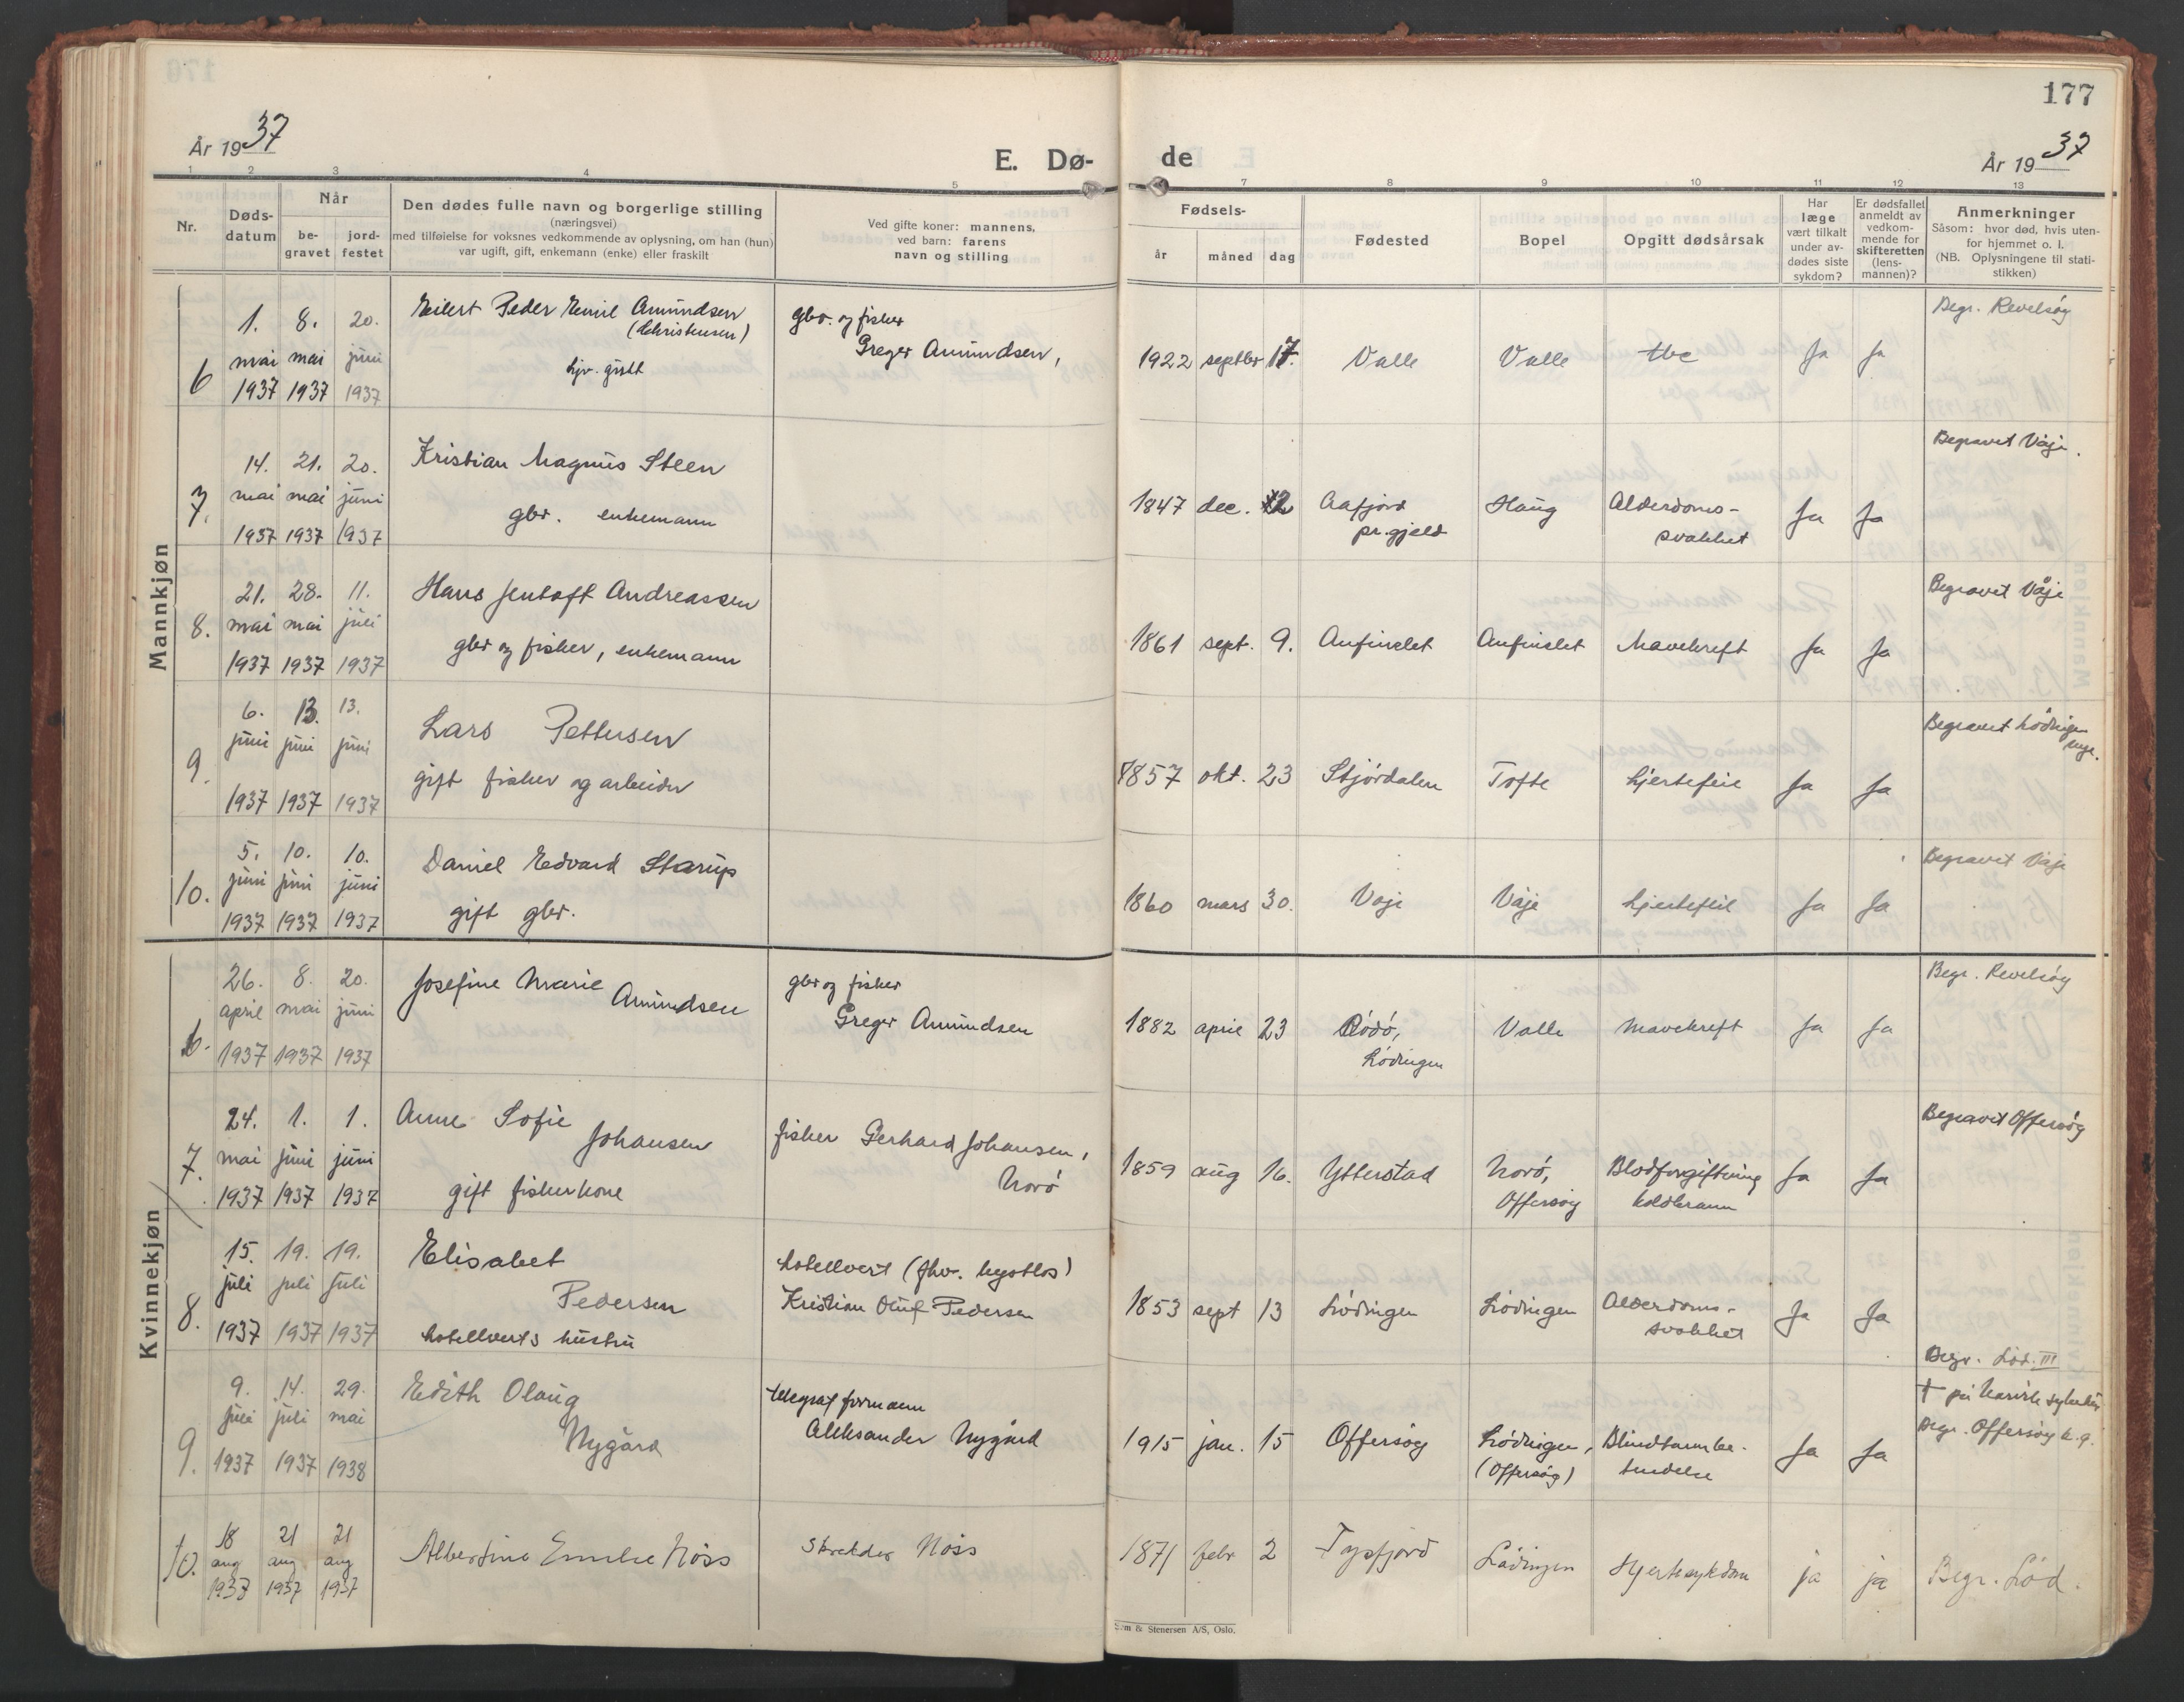 177
År 1937
E. Dø-
de
År 1937
1 2 3 4 5 7 8 9 10 11 12 13
Nr.
Døds-
datum
Når
be-
gravet
jord-
festet
Den dødes fulle navn og borgerlige stilling
(næringsvei)
med tilføielse for voksnes vedkommende av oplysning, om han (hun)
var ugift, gift, enkemann (enke) eller fraskilt
Ved gifte koner: mannens,
ved barn: farens
navn og stilling
Fødsels-
år
måned
dag
Fødested
Bopel
Opgitt dødsårsak
Har
læge
vært tilkalt
under av-
dødes siste
sykdom?
Er dødsfallet
anmeldt av
vedkom-
mende for
skifteretten
(lens-
mannen)?
Anmerkninger
Såsom: hvor død, hvis uten-
for hjemmet o. l.
(NB. Oplysningene til stati-
stikken)
Mannkjøn
6
1. mai 1937
8. mai 1937
20. juni 1937
Eilert Peder Emil Amundsen
(Christensen)
gbr. og fisher
Greger Amundsen,
1922 septbr 17.
Valle
Valle
tbc
Ja
Ja
Begr. Revelsøg
7.
14. mai 1937
21. mai 1937
20. juni 1937
Kristian Magnus Steen
gbr. enkemann
1847 dec. 12
Aafjord
pr.gjeld
Haug
Alderdoms-
svakhet
Ja
Ja
Begravet Våje.
8.
21. mai 1937
28. mai 1937
11. juli 1937
Hans Jentoft Andreassen
gbr og fisker, enkemann
1861 sept. 9.
Anfinslet
Anfinslet
Mavekreft
Ja
Ja
Begravet Våje
9.
6. juni 1937
13. juni 1937
13. juni 1937
Lars Pettersen
gift fisker og arbeider
1857 okt. 23
Stjórdalen
Tofte
hjertefeil
Ja
Ja
Begravet Lödingen
10.
5. juni 1937
10. juni 1937
10. juni 1937
Daniel Edvard Starup
gift gbr.
1860 mars 30.
Våje
Våje
hjertefeil
Ja
Ja
Begravet Våje
Kvinnekjøn
6.
26. april 1937
8. mai 1937
20. juni 1937
Josefine Marie
Amundsen
gbr og fisker
Greger Amundsen
1882 april 23
Rödö,
Lödingen
Valle
mavekreft
Ja
Ja
Begr. Revelsøg
7.
24. mai 1937
1. juni 1937
1. juni 1937
Anne Sofie
Johansen
gift fiskerkone
fisker Gerhard Johansen,
Norö
1859 aug 16.
Ytterstad
Norö,
Offersøg
Blodforgiftning
koldbrann
Ja
Ja
Begravet Offersøg
8.
15. juli 1937
19. juli 1937
19. juli 1937
Elisabet
Pedersen
hotellverts hustru
hotellvert (fhv. kystlos)
Kristian Oluf Pedersen
1853 sept 13
Lödingen
Lödingen
Alderdoms-
svakhet
Ja
Ja
Begr. Löd. III
9.
9. juli 1937
14. juli 1937
29. mai 1938
Edith Olaug
Nygård
telegraf formann
Aleksander Nygård
1915 jan. 15
Offersøg
Lödingen,
(Offersøg)
Blindtarmbe-
tendelse
Ja
Ja
† på Narvik sykehus
Begr. Offersøg k.g.
10.
18 aug 1937
21 aug 1937
21 aug 1937
Albertine Emilie Höss
Skredder Höss
1871 febr 2
Tysfjord
Lödingen
Hjertesykdom
ja
ja
Begr. Löd.
& Stenersen A/S, Oslo.